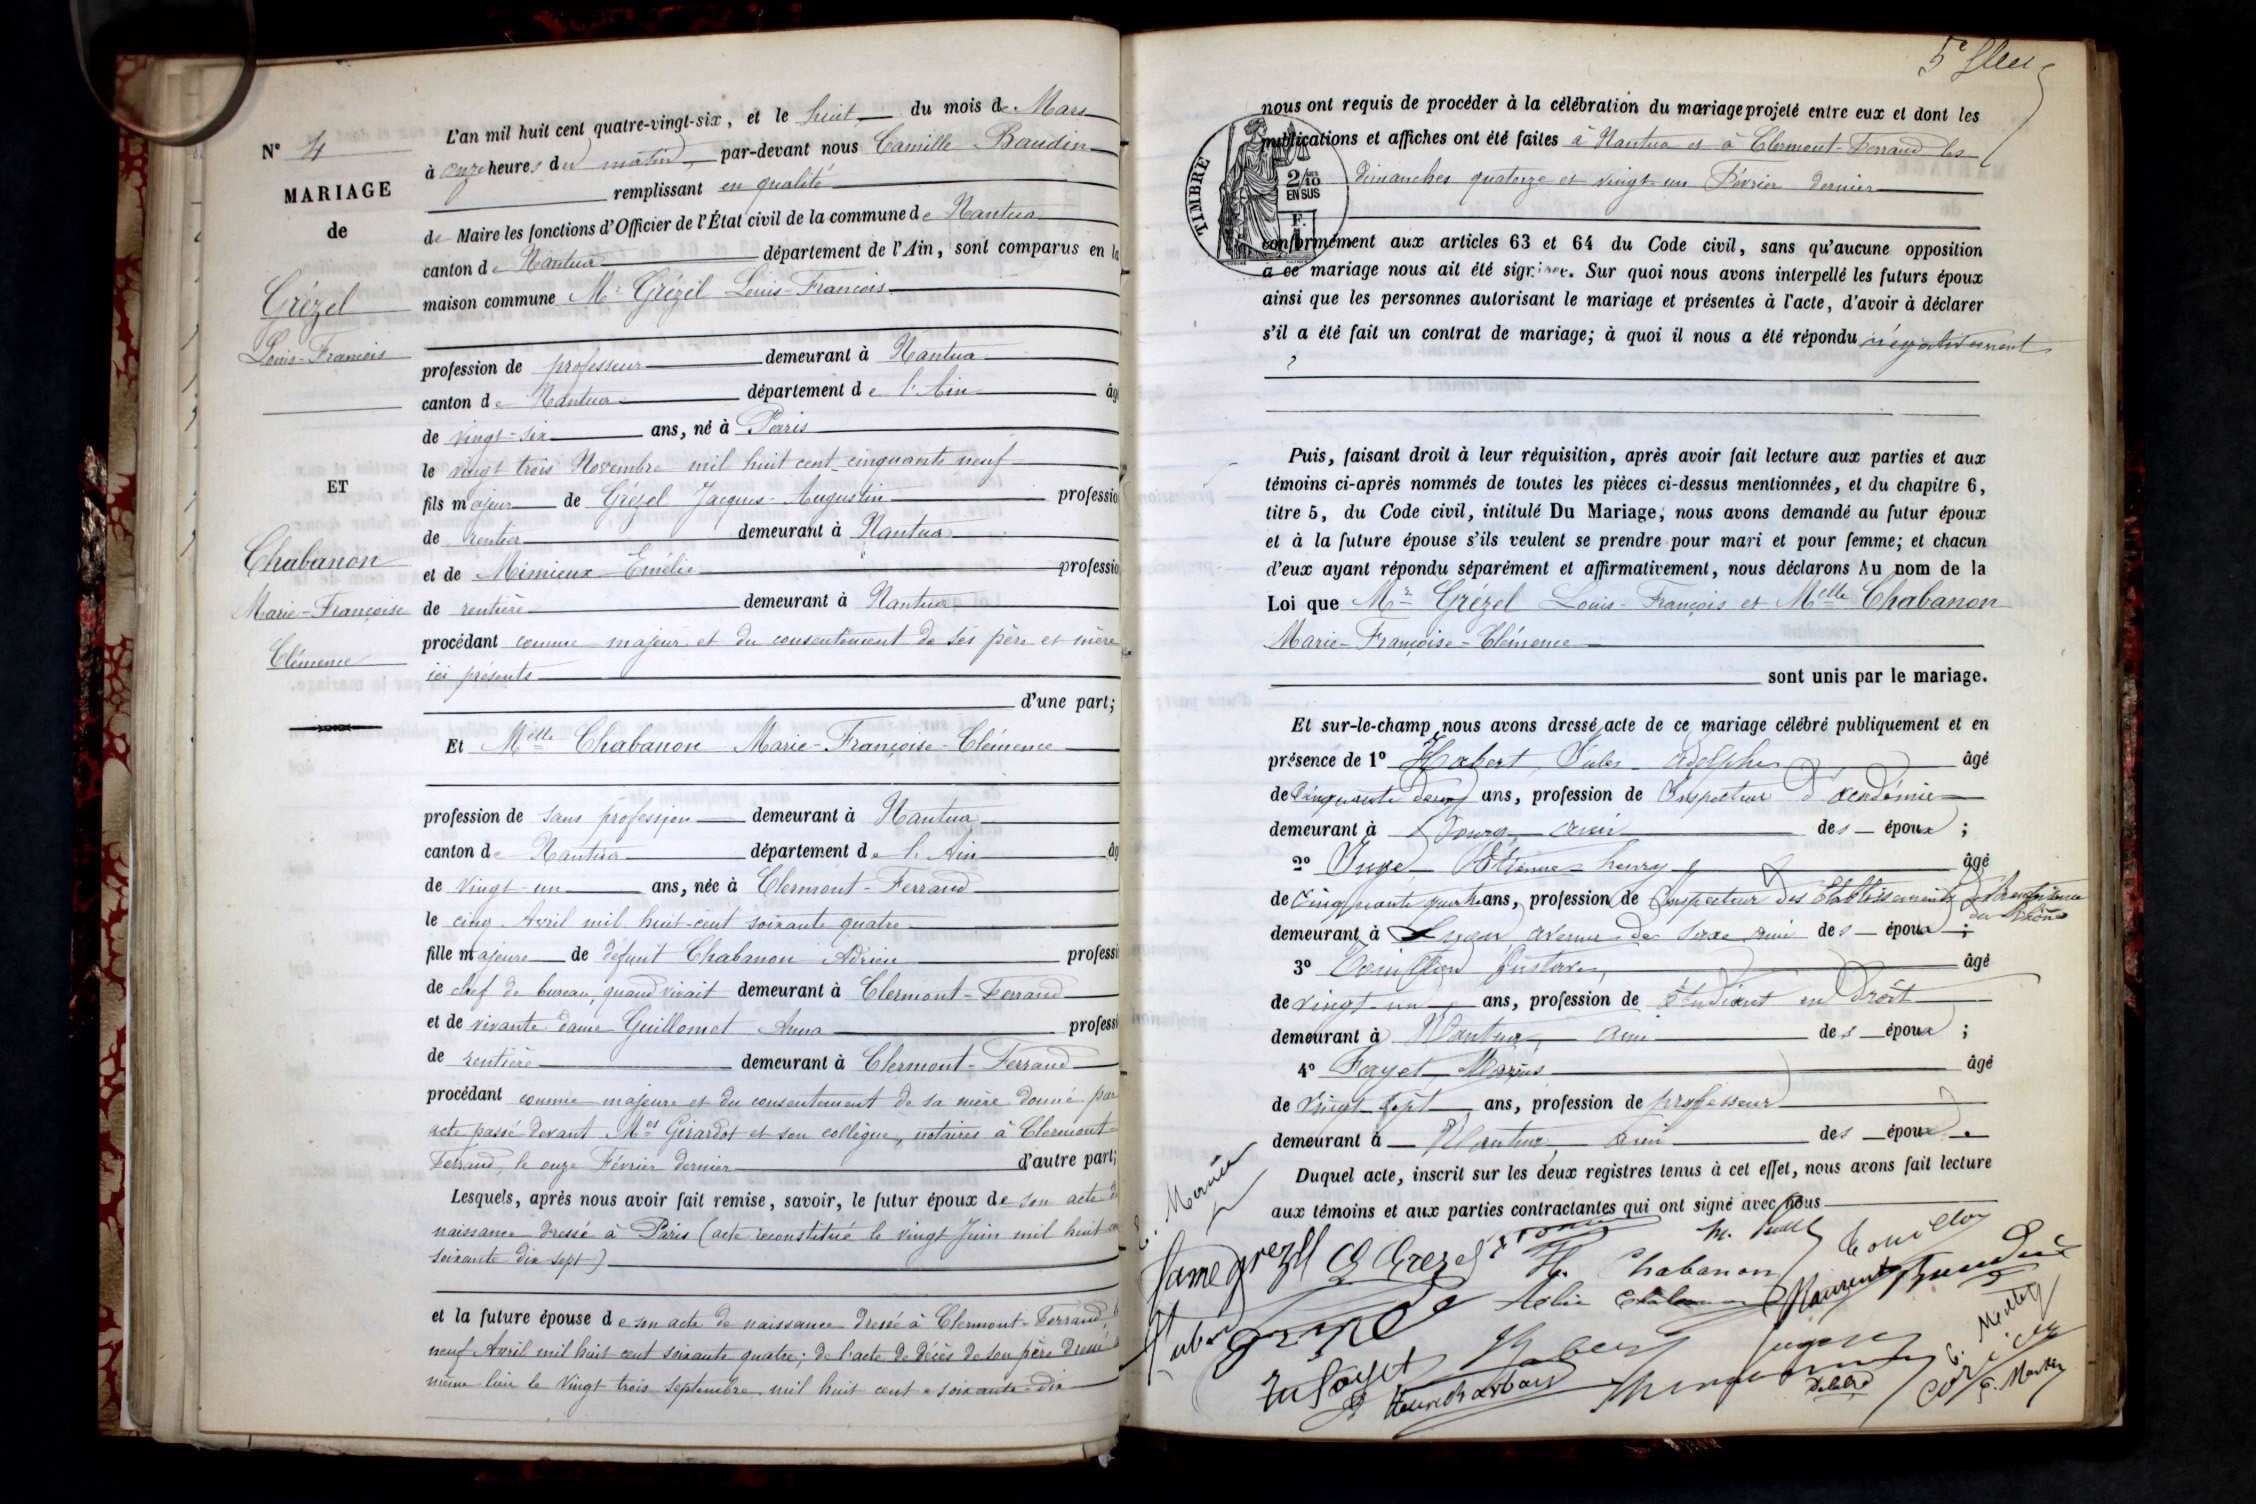 N° 4
MARIAGE
de
Grézel
Louis-François
ET
Chabanon
Marie-Françoise
Clémence
L'an mil huit cent quatre-vingt-six, et le huit du mois de Mars
à onze heures du matin, par-devant nous Camille Baudin
remplissant en qualité
de Maire les fonctions d'Officier de l'État civil de la commune de Nantua
canton de Nantua département de l'Ain, sont comparus en la
maison commune Mr Grézel Louis-François
profession de professeur demeurant à Nantua
canton de Nantua département de l'Ain âgé
de vingt-six ans, né à Paris
le vingt trois Novembre mil huit cent cinquante neuf
fils majeur de Grézel Jacques-Augustin profession
de rentier demeurant à Nantua
et de Mimieux Emélie profession
de rentière demeurant à Nantua
procédant comme majeur et du consentement de ses père et mère
ici présents
d'une part;
Et Melle Chabanon Marie-Françoise-Clémence
profession de sans profession demeurant à Nantua
canton de Nantua département de l'Ain âg
de vingt-un ans, née à Clermont-Ferrand
le cinq Avril mil huit-cent soixante quatre
fille majeure de défunt Chabanon Adrien professi
de chef de bureau, quand vivait demeurant à Clermont-Ferrand
et de vivante dame Guillomet Anna professi
de rentière demeurant à Clermont-Ferrand
procédant comme majeure et du consentement de sa mère donné par
acte passé devant Mes Girardot et son collègue, notaires à Clermont-
Ferrand, le onze Février dernier d'autre part;
Lesquels, après nous avoir fait remise, savoir, le futur époux de son acte de
naissance dressé à Paris (acte reconstitué le vingt Juin mil huit cent
soixante dix sept)
et la future épouse de son acte de naissance dressé à Clermont-Ferrand, le
neuf Avril mil huit cent soixante quatre; de l'acte de décès de son père dressé
même lieu le vingt trois septembre mil huit cent soixante-dix
nous ont requis de procéder à la célébration du mariage projeté entre eux et dont les
publications et affiches ont été faites à Nantua et à Clermont-Ferrand les
dimanches quatorze et vingt un Février dernier
TIMBRE
2/10
EN SUS
conformément aux articles 63 et 64 du Code civil, sans qu'aucune opposition
à ce mariage nous ait été signifiée. Sur quoi nous avons interpellé les futurs époux
ainsi que les personnes autorisant le mariage et présentes à l'acte, d'avoir à déclarer
s'il a été fait un contrat de mariage; à quoi il nous a été répondu négativement
Puis, faisant droit à leur réquisition, après avoir fait lecture aux parties et aux
témoins ci-après nommés de toutes les pièces ci-dessus mentionnées, et du chapitre 6,
titre 5, du Code civil, intitulé Du Mariage, nous avons demandé au futur époux
et à la future épouse s'ils veulent se prendre pour mari et pour femme; et chacun
d'eux ayant répondu séparément et affirmativement, nous déclarons Au nom de la
Loi que Mr Grézel Louis-François et Melle Chabanon
Marie-Françoise-Clémence
sont unis par le mariage.
Et sur-le-champ nous avons dressé acte de ce mariage célébré publiquement et en
présence de 1° Habert Jules Adolphe âgé
de cinquante deux ans, profession de Inspecteur d'académie
demeurant à Bourg ami des époux;
2° Juge Etienne henry âgé
de Cinquante quatre ans, profession de Inspecteur des Etablissements de bienfaisance
du Rhône
demeurant à Lyon avenue de Saxe ami des époux;
3° Gustave âgé
de vingt-un ans, profession de Etudiant en Droit
demeurant à Nantua, ami des époux;
4° Fayet Marius âgé
de Vingt sept ans, profession de professeur
demeurant à Nantua, ami des époux.
Duquel acte, inscrit sur les deux registres tenus à cet effet, nous avons fait lecture
aux témoins et aux parties contractantes qui ont signé avec nous
Chabanon
Habert
Delaléo